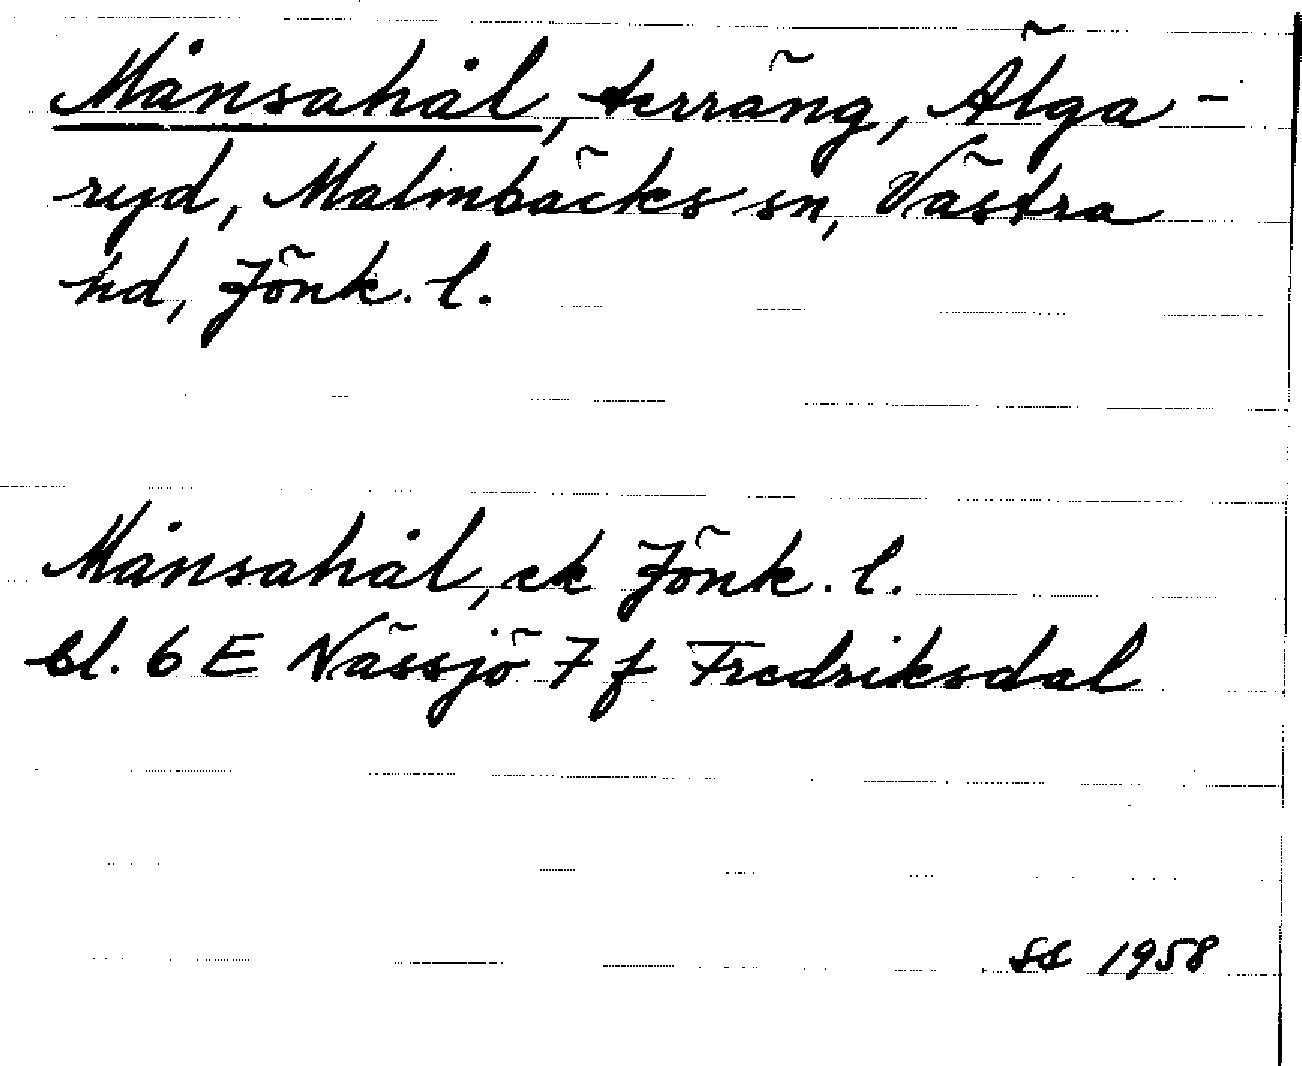 Månsahål, terräng, Älga-
ryd, Malmbäcks sn, Västra
hd, Jönk. l.
Månsahål, ek Jönk. l.
bl. 6 E Nässjö 7 f Fredriksdal
1958